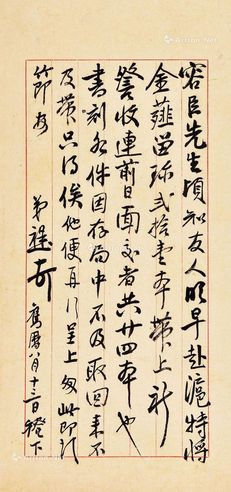 容臣先生頃知友人明早赴滬特將
金薤留珍弍拾壹本帶上祈
詧收連前日面交者共廿四本也
書刻各件因存局中不及取回来不
及帶只得俟他便再行呈上匆此即頌
節安
弟禔 奇
舊曆八月十三日燈下